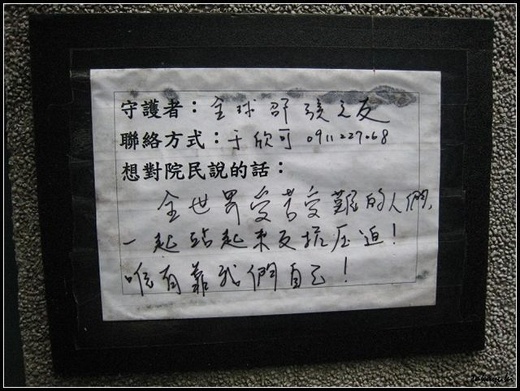 守護者：全球邵族之友
聯絡方式：于欣可 0911227068
想對院民說的話：
全世界受苦受難的人們，
一起站起來反抗壓迫！
唯有靠我們自己！